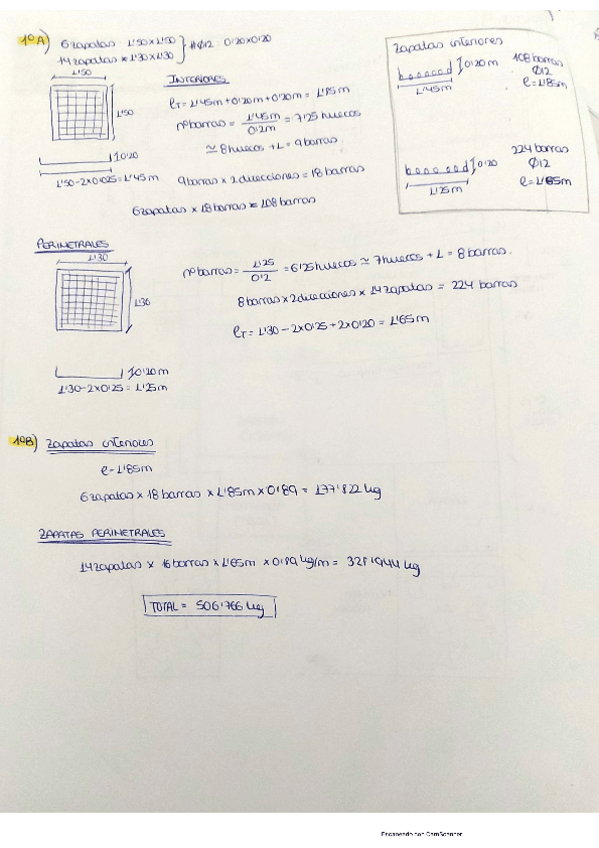 10A) 6 zapatas 1'50x1'50 } #Ø12 0'20x0'20
14 zapatas x 1'30x1'30
Zapatas interiores
0'20m 108 barras
Ø12
1'45m l=1'85m
224 barras
0'20 Ø12
1'25m l=1'65m
1'50
INTERIORES
1'50
lT = 1'45m + 0'20m + 0'20m = 1'85m
nº barras = 1'45m / 0'2m = 7'25 huecos
≃ 8 huecos + 1 = 9 barras
0'20
1'50-2x0'025=1'45m
9 barras x 2 direcciones = 18 barras
6 zapatas x 18 barras = 108 barras
PERIMETRALES
1'30
1'30
nº barras = 1'25 / 0'2 = 6'25 huecos ≃ 7 huecos + 1 = 8 barras.
8 barras x 2 direcciones x 14 zapatas = 224 barras
lT = 1'30 - 2x0'25 + 2x0'20 = 1'65m
0'20m
1'30-2x0'25 = 1'25m
10B) Zapatas interiores
l=1'85m
6 zapatas x 18 barras x 1'85m x 0'89 = 177'822 kg
ZAPATAS PERIMETRALES
14 zapatas x 16 barras x 1'65m x 0'89 kg/m = 328'944 kg
TOTAL = 506'766 kg
Escaneado con CamScanner